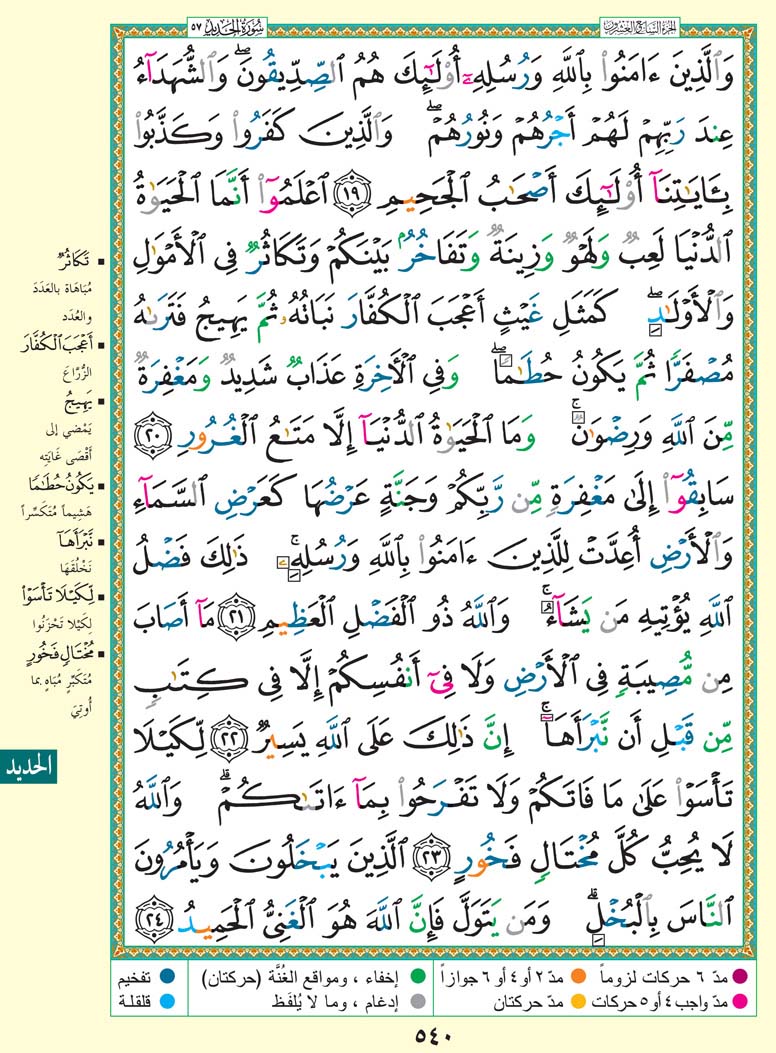 الجزء السابع والعشرون
سورة الحديد ٥٧
وَٱلَّذِينَ ءَامَنُوا۟ بِٱللَّهِ وَرُسُلِهِۦٓ أُو۟لَـٰٓئِكَ هُمُ ٱلصِّدِّيقُونَ ۖ وَٱلشُّهَدَآءُ
عِندَ رَبِّهِمْ لَهُمْ أَجْرُهُمْ وَنُورُهُمْ ۖ وَٱلَّذِينَ كَفَرُوا۟ وَكَذَّبُوا۟
بِـَٔايَـٰتِنَآ أُو۟لَـٰٓئِكَ أَصْحَـٰبُ ٱلْجَحِيمِ ١٩ ٱعْلَمُوٓا۟ أَنَّمَا ٱلْحَيَوٰةُ
ٱلدُّنْيَا لَعِبٌ وَلَهْوٌ وَزِينَةٌ وَتَفَاخُرٌۢ بَيْنَكُمْ وَتَكَاثُرٌ فِى ٱلْأَمْوَٰلِ
وَٱلْأَوْلَـٰدِ ۖ كَمَثَلِ غَيْثٍ أَعْجَبَ ٱلْكُفَّارَ نَبَاتُهُۥ ثُمَّ يَهِيجُ فَتَرَىٰهُ
مُصْفَرًّا ثُمَّ يَكُونُ حُطَـٰمًا ۖ وَفِى ٱلْـَٔاخِرَةِ عَذَابٌ شَدِيدٌ وَمَغْفِرَةٌ
مِّنَ ٱللَّهِ وَرِضْوَٰنٌ ۚ وَمَا ٱلْحَيَوٰةُ ٱلدُّنْيَآ إِلَّا مَتَـٰعُ ٱلْغُرُورِ ٢٠
سَابِقُوٓا۟ إِلَىٰ مَغْفِرَةٍ مِّن رَّبِّكُمْ وَجَنَّةٍ عَرْضُهَا كَعَرْضِ ٱلسَّمَآءِ
وَٱلْأَرْضِ أُعِدَّتْ لِلَّذِينَ ءَامَنُوا۟ بِٱللَّهِ وَرُسُلِهِۦ ۚ ذَٰلِكَ فَضْلُ
ٱللَّهِ يُؤْتِيهِ مَن يَشَآءُ ۚ وَٱللَّهُ ذُو ٱلْفَضْلِ ٱلْعَظِيمِ ٢١ مَآ أَصَابَ
مِن مُّصِيبَةٍ فِى ٱلْأَرْضِ وَلَا فِىٓ أَنفُسِكُمْ إِلَّا فِى كِتَـٰبٍ
مِّن قَبْلِ أَن نَّبْرَأَهَآ ۚ إِنَّ ذَٰلِكَ عَلَى ٱللَّهِ يَسِيرٌ ٢٢ لِّكَيْلَا
تَأْسَوْا۟ عَلَىٰ مَا فَاتَكُمْ وَلَا تَفْرَحُوا۟ بِمَآ ءَاتَىٰكُمْ ۗ وَٱللَّهُ
لَا يُحِبُّ كُلَّ مُخْتَالٍ فَخُورٍ ٢٣ ٱلَّذِينَ يَبْخَلُونَ وَيَأْمُرُونَ
ٱلنَّاسَ بِٱلْبُخْلِ ۗ وَمَن يَتَوَلَّ فَإِنَّ ٱللَّهَ هُوَ ٱلْغَنِىُّ ٱلْحَمِيدُ ٢٤
▪ تَكَاثُرٌ
مُبَاهَاة بالعَدَدِ
والعُدَد
▪ أَعْجَبَ ٱلْكُفَّارَ
الزُّرَّاعَ
▪ يَهِيجُ
يَمْضي إلى
أَقْصَى غَايَتِه
▪ يَكُونُ حُطَـٰمًا
هَشِيماً مُتَكَسِّراً
▪ نَّبْرَأَهَآ
نَخْلُقَهَا
▪ لِّكَيْلَا تَأْسَوْا۟
لِكَيْلا تَحْزَنُوا
▪ مُخْتَالٍ فَخُورٍ
مُتَكَبِّرٍ مُبَاهٍ بما
أُوتِيَ
الحديد
● مدّ ٦ حركات لزوماً ● مدّ ٢ أو ٤ أو ٦ جوازاً ● إخفاء ، ومواقع الغُنَّة (حركتان) ● تفخيم
● مدّ واجب ٤ أو ٥ حركات ● مدّ حركتان ● إدغام ، وما لا يُلفَظ ● قلقلة
٥٤٠